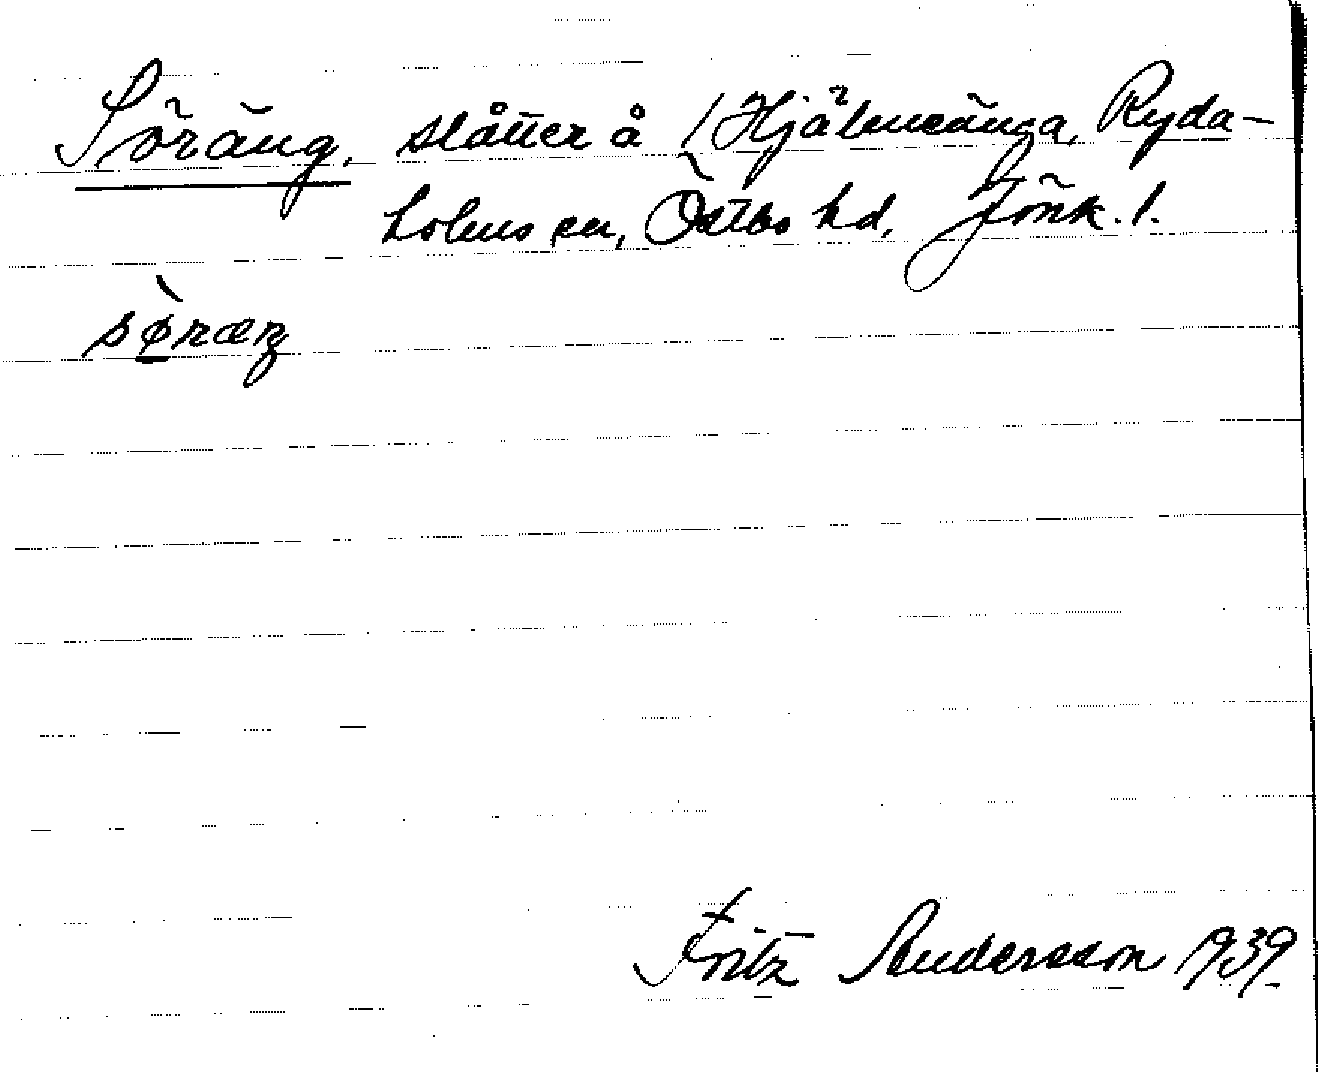 Söräng, slåtter å Hjälmeänga, Ryda-
holms sn, Östbo hd, Jönk. l.
sø̀ræŋ
Fritz Andersson 1939.